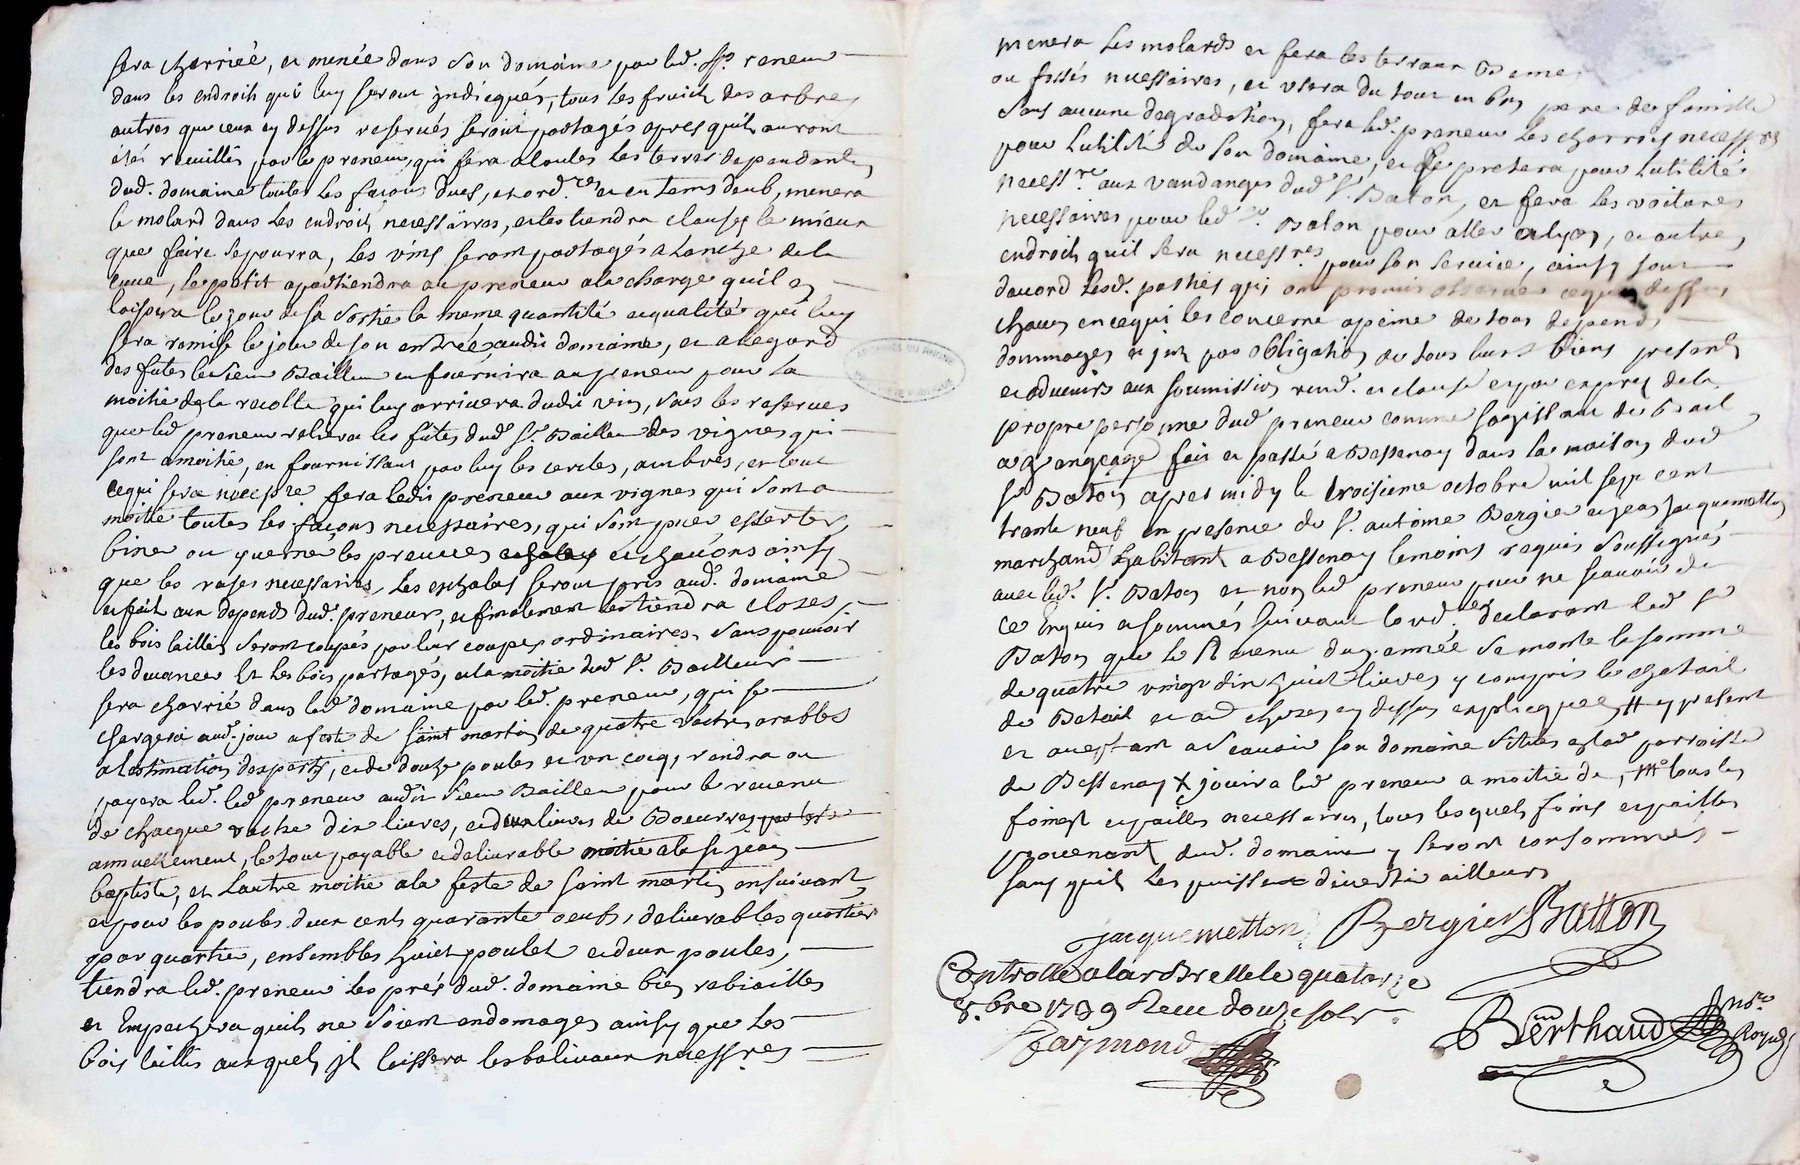 sera charriée, et menée dans son domaine par led. sr. preneur
dans les endroits qui luy seront indicqués, tous les fruits des arbres
autres que ceux cy dessus reservés seront partagés apres quils auront
étés receuillis par le preneur, qui fera a toutes les terres dependantes
dud. domaine toutes les façons dues, et ordres et en tems deub, menera
le molard dans les endroits necessaires, et les tiendra clauses le mieux
que faire se pourra, Les vins seront partagés a lanche de la
cuve, le petit apartiendra au preneur a la charge quil en
laissera le jour de sa sortie la meme quantité et qualité qui luy
sera remise le jour de son entrée audit domaine, et a legard
des futes le sieur Bailleur en fournira au preneur pour la
moitié de la recolte qui luy arrivera dudit vin, sous les reserves
que led preneur reliera les futes dud sr. Bailleur des vignes qui
sont a moitié, en fournissant par luy les cercles, ambres, et tout
ce qui sera necessre fera ledit preneur aux vignes qui sont a
moitié toutes les façons necessaires, qui sont puer, essertes,
biner ou les preuves et chavons ainsy
que les rases necessaires, Les eschalas seront pris aud. domaine
et fait aux depends dud. preneur, et finalement les tiendra closes,
les bois taillis seront coupés par leur coupes ordinaires, sans pouvoir
les devancer Et les bois partagés, et la moitié dud sr. Bailleur
sera charrié dans led domaine par led. preneur, qui se
chargera aud. jour et feste de saint martin de quatre vaches arables
a lestimation des partis, et de douze poules et un cocq, rendra ou
payera led. led preneur audit sieur Bailleur pour le revenu
de chacque vache dix livres, et deux livres de Boeurre
annuellement, le tout payable et delivrable moitié a la st jean
baptiste, et L'autre moitié a la feste de saint martin ensuivant
et pour les poules deux cents quarante oeufs, delivrables quartier
par quartier, ensembles huict poulet et deux poules,
tiendra led. preneur les prés dud. domaine bien rabiailles
et Empechera quils ne soient endomages ainsy que Les
bois taillis auxquels jl laissera les balivaux necessres
menera les molards et fera les terraux
ou fossés necessaires, et usera du tout en bon pere de famille
sans aucune degradation, fera led. preneur les charrois necessres
pour Lutilité de son domaine, et se pretera pour Lutilité
necessre aux vandanges dud sr. Baton, et fera les voitures
necessaires pour led sr. Baton pour aller a Lyon, et autres
endroits quil sera necessres pour son service, ainsy sont
daccord lesd. parties qui ont promis observer ce que dessus
chacun en ce qui les concerne apeine de tous depends,
dommages et jnts par obligation de tous leurs biens presents
et advenirs aux soumission rend. et clause et par exprez de la
propre personne dud preneur comme sagissant de Bail
a grangeage fait et passé a Bessenay dans la maison dud
sr Baton apres midy le troisieme octobre mil sept cent
trente neuf en presence de sr. antoine Bergier et jean jacquemetton
marchand habitant a Bessenay temoins requis soussignés
avec led. sr. Baton et non led preneur pour ne scavoir de
ce Enquis et sommés suivant lord. declarant led sr
Baton que le Revenu dus. année se monte la somme
de quatre vingt dix huict livres y compris le chatail
de Betail et aud choses cy dessus explicquees et present
et acceptant a scavoir son domaine situes aud parroisse
de Bessenay X jouira led preneur a moitié de, tous les
foins et pailles necessaires, tous lesquels foins et pailles
provenant dud. domaine y seront consommés
sans quil les puisse divertir ailleurs
jacquemetton Bergier Batton
Controllé a larbrelle le quatorze
8.bre 1739 Receu douze sols
Raymond
Berthaud nore Royal